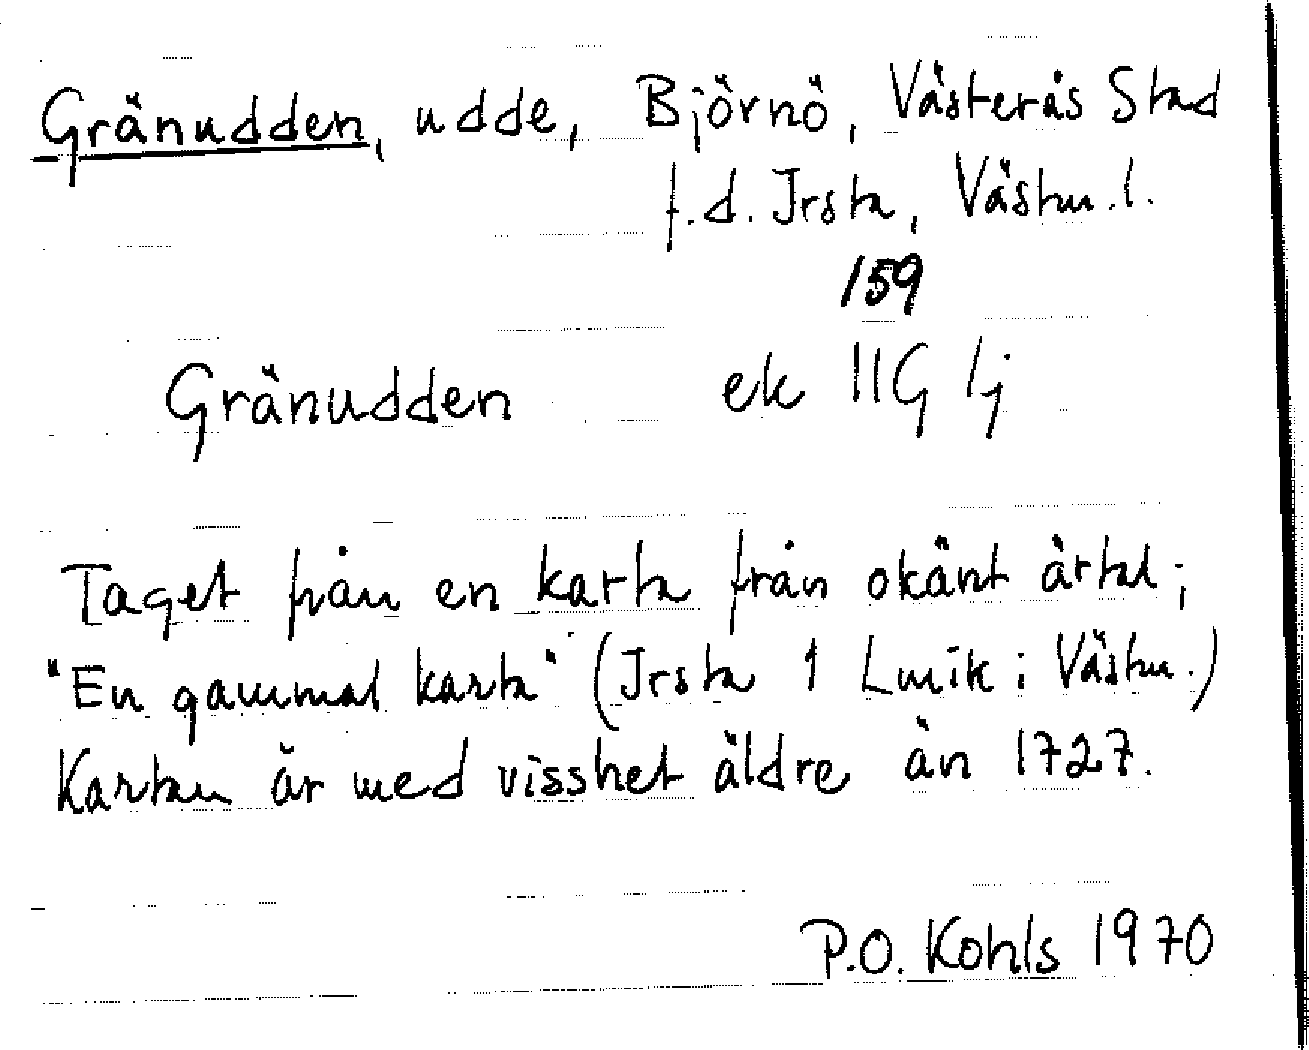 Gränudden, udde, Björnö, Västerås Stad
f.d. Irsta, Västm.l.
159
Gränudden ek 11G Ij
Taget från en karta från okänt årtal;
"En gammal karta" (Irsta 1 Lmfk i Västm.)
Kartan är med visshet äldre än 1727.
P.O. Kohls 1970